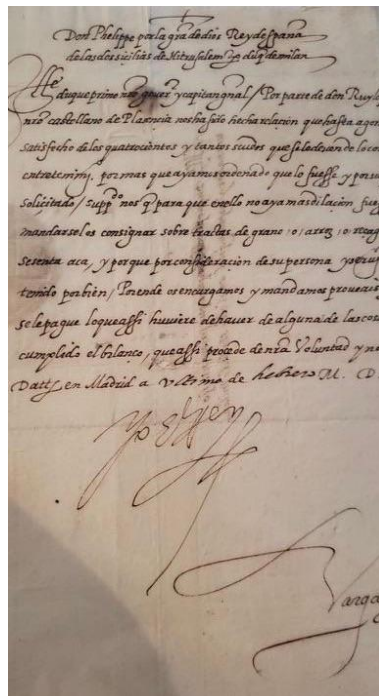 Don Phelippe por la grā de dios Rey de España
de las dos sicilias de Hierusalem etc duq̄ de milan
Illre
duque primo nro gover.or y capitan gñal / Por parte de don Ruy
nro castellano de Plasencia nos ha sido hecha relaçion que hasta agora
satisfecho de los quatroçientos y tantos scudos que se le devian de lo
entretenimi.to por mas que ayamos ordenado que lo fuesse y por su
solicitado / supp.do nos q̄ para que en ello no aya mas dilaçion
mandarselos consignar sobre traltas de grano, o, arroz, o
sesenta aca, y porque por consideraçion de su persona y
tenido por bien / Por ende os encargamos y mandamos proveais
se le pague lo que assi huviere de haver de alguna de las
cumplido el bilanco, que assi procede de nra Voluntad y
Datt. en Madrid a ultimo de hebrero M. D.
Yo el Rey
Varga